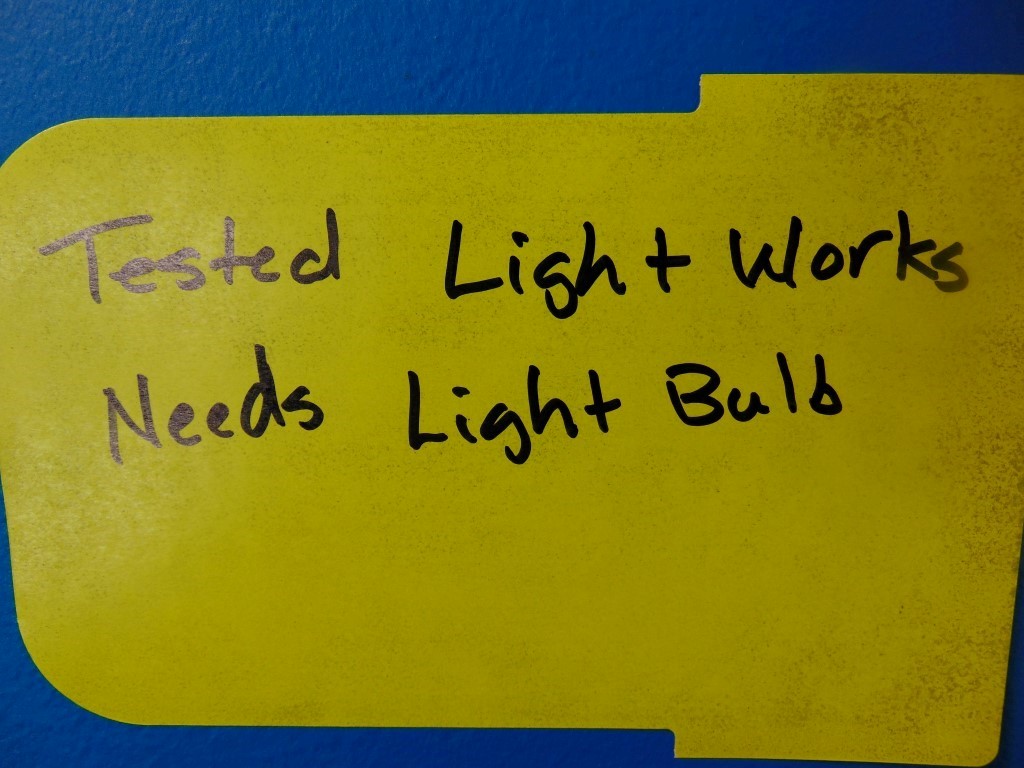 Tested Light Works
Needs Light Bulb